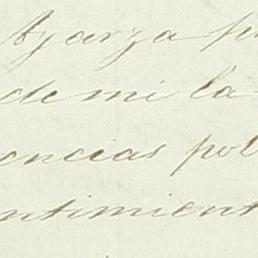 Ayarza p
de mi la
encias pol
ntimient